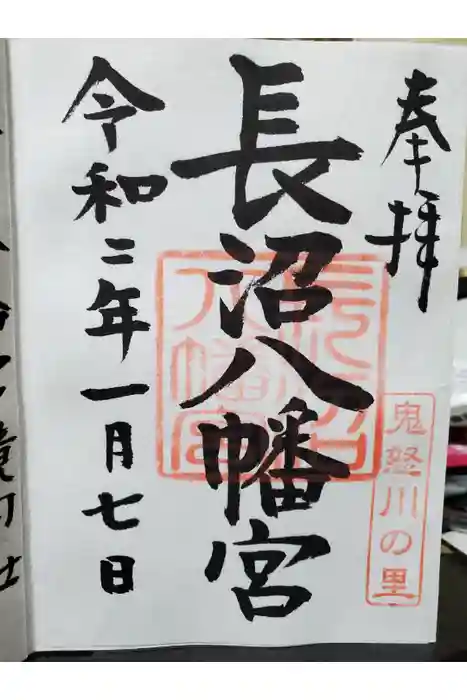 奉拝
長沼八幡宮
長沼八幡宮
鬼怒川の里
令和二年一月七日